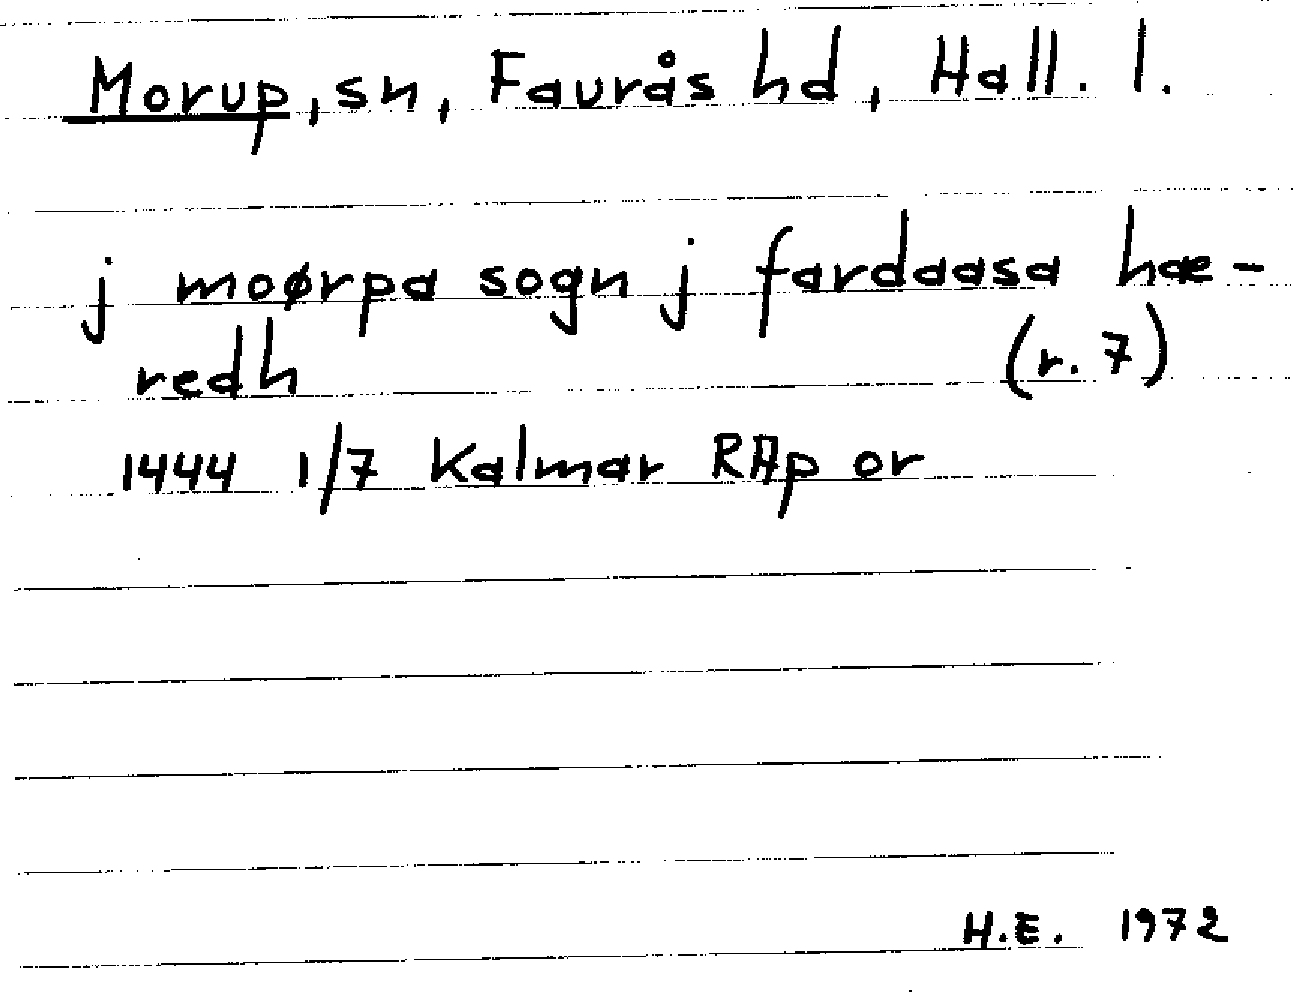 Morup, sn, Faurås hd, Hall. l.
j moørpa sogn j fardaasa hæ-
redh (r. 7)
1444 1/7 Kalmar RAp or
H.E. 1972